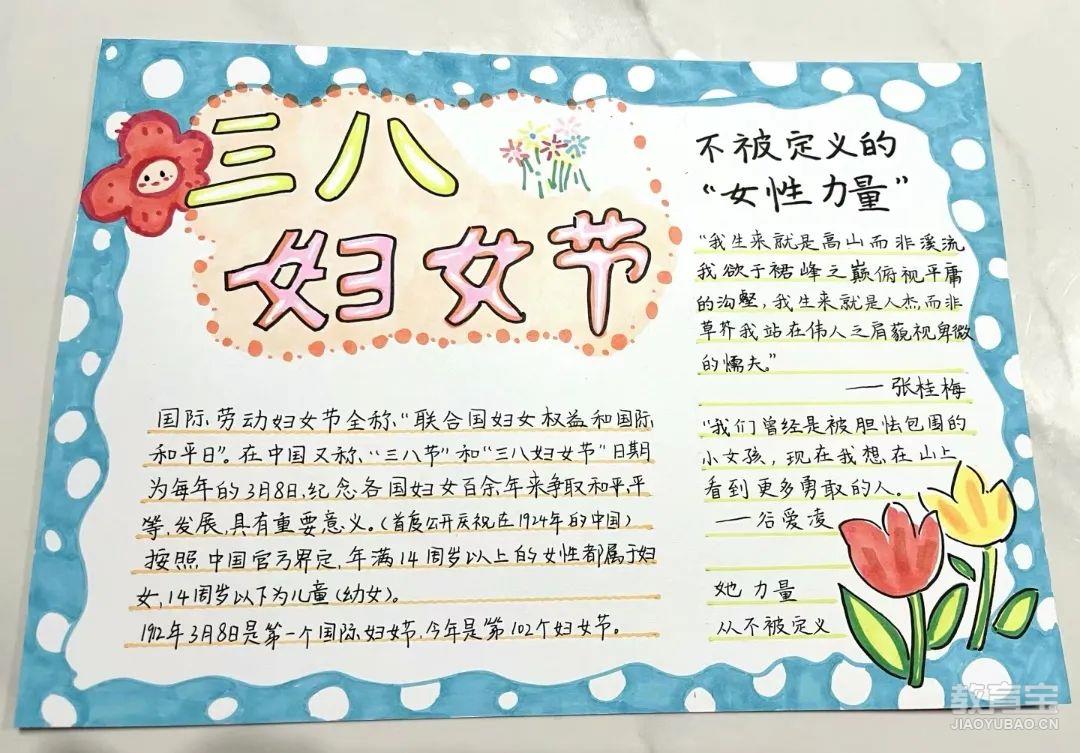 三八
妇女节
国际劳动妇女节全称，“联合国妇女权益和国际
和平日”。在中国又称，“三八节”和“三八妇女节”日期
为每年的3月8日，纪念各国妇女百余年来争取和平，平
等，发展，具有重要意义。（首度公开庆祝在1924年的中国）
按照，中国官方界定，年满14周岁以上的女性都属于妇
女，14周岁以下为儿童（幼女）。
1912年3月8日是第一个国际妇女节，今年是第102个妇女节。
不被定义的
“女性力量”
“我生来就是高山而非溪流
我欲于裙峰之巅俯视平庸
的沟壑，我生来就是人杰而非
草芥我站在伟人之肩藐视卑微
的懦夫。”
——张桂梅
“我们曾经是被胆怯包围的
小女孩，现在我想在山上
看到更多勇敢的人。
——谷爱凌
她力量
从不被定义
教育宝
JIAOYUBAO.CN